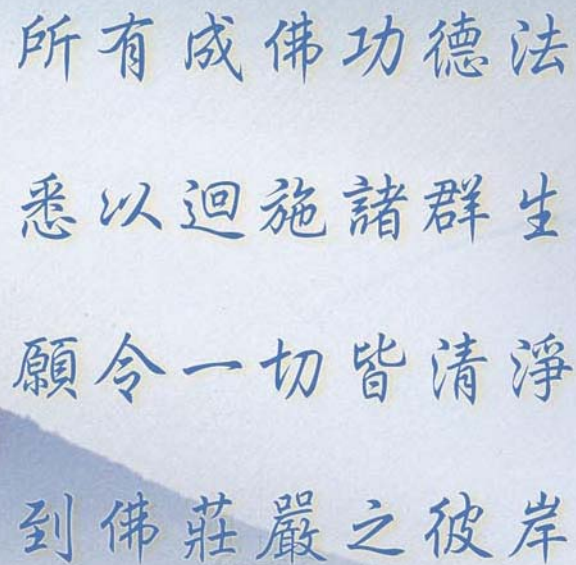 所有成佛功德法
悉以迴施諸群生
願令一切皆清淨
到佛莊嚴之彼岸